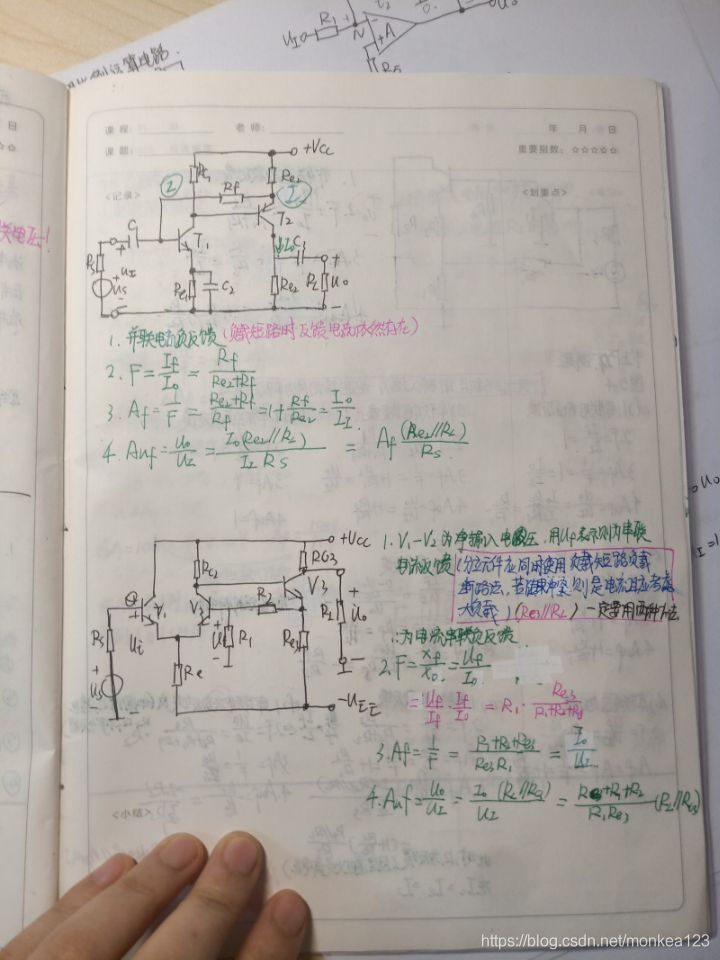 R₁
UI
N
A
运算电路
课程:
老师:
年 月 日
课题:
重要指数: ☆☆☆☆☆
<记录>
<划重点>
+VCC
Re2
Rf
T2
T1
C2
Re1
Re2
RL
Uo
Rs
Us
UI
1. 并联电流负反馈(负载短路时反馈电流依然存在)
2. F = If/Io = Rf/(Re2+Rf)
3. Af = 1/F = (Re2+Rf)/Rf = 1+Rf/Re2 = Io/II
4. Auf = Uo/UI = Io(Re2//RL)/(II Rs) = Af (Re2//RL)/Rs
+VCC
RC2
RC3
V1
V2
V3
R2
R1
Rs
Us
Re
Re3
RL
Uo
-UEE
1. V1-V2为净输入电压, 用Uf表示则为串联
电流反馈
(分立元件应同时使用负载短路负载
断路法, 若结果冲突则是电流且应考虑
大负载) (Re3//RL) 一定要用两种方法
为电流串联负反馈
2. F = Xf/Xo = Uf/Io
= Uf/If · If/Io = R1 · Re3/(R1+R2+Re3)
3. Af = 1/F = (R1+R2+Re3)/(Re3R1) = Io/UI
4. Auf = Uo/UI = Io(RL//RC3)/UI = (Re3+R1+R2)/(R1Re3) (RL//RC3)
<小结>
https://blog.csdn.net/monkea123